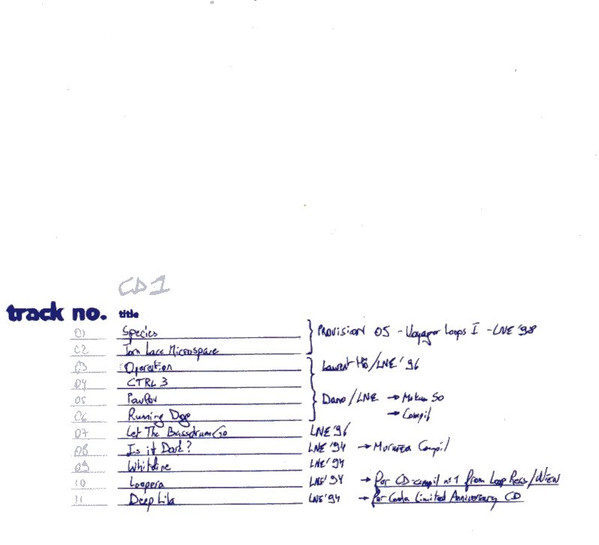 CD1
track no. title
01 Species
PROVISION 05 - Voyager Loops I - LNE '98
02 Torn Lace Microspace
03 Operation
Laurent Hô/LNE '96
04 CTRL 3
05
Dano/LNE → Mokum 50
06 Running Dogg
→ Compil
07 Let The Bassdrum Go LNE '96
08 Is it Dark? LNE '94 → Compil
09 Whiteline LNE '94
10 Loopera LNE '94 → Por CD compil n°1 from Loop
11 Deep Lila LNE '94 → For Limited Anniversary CD